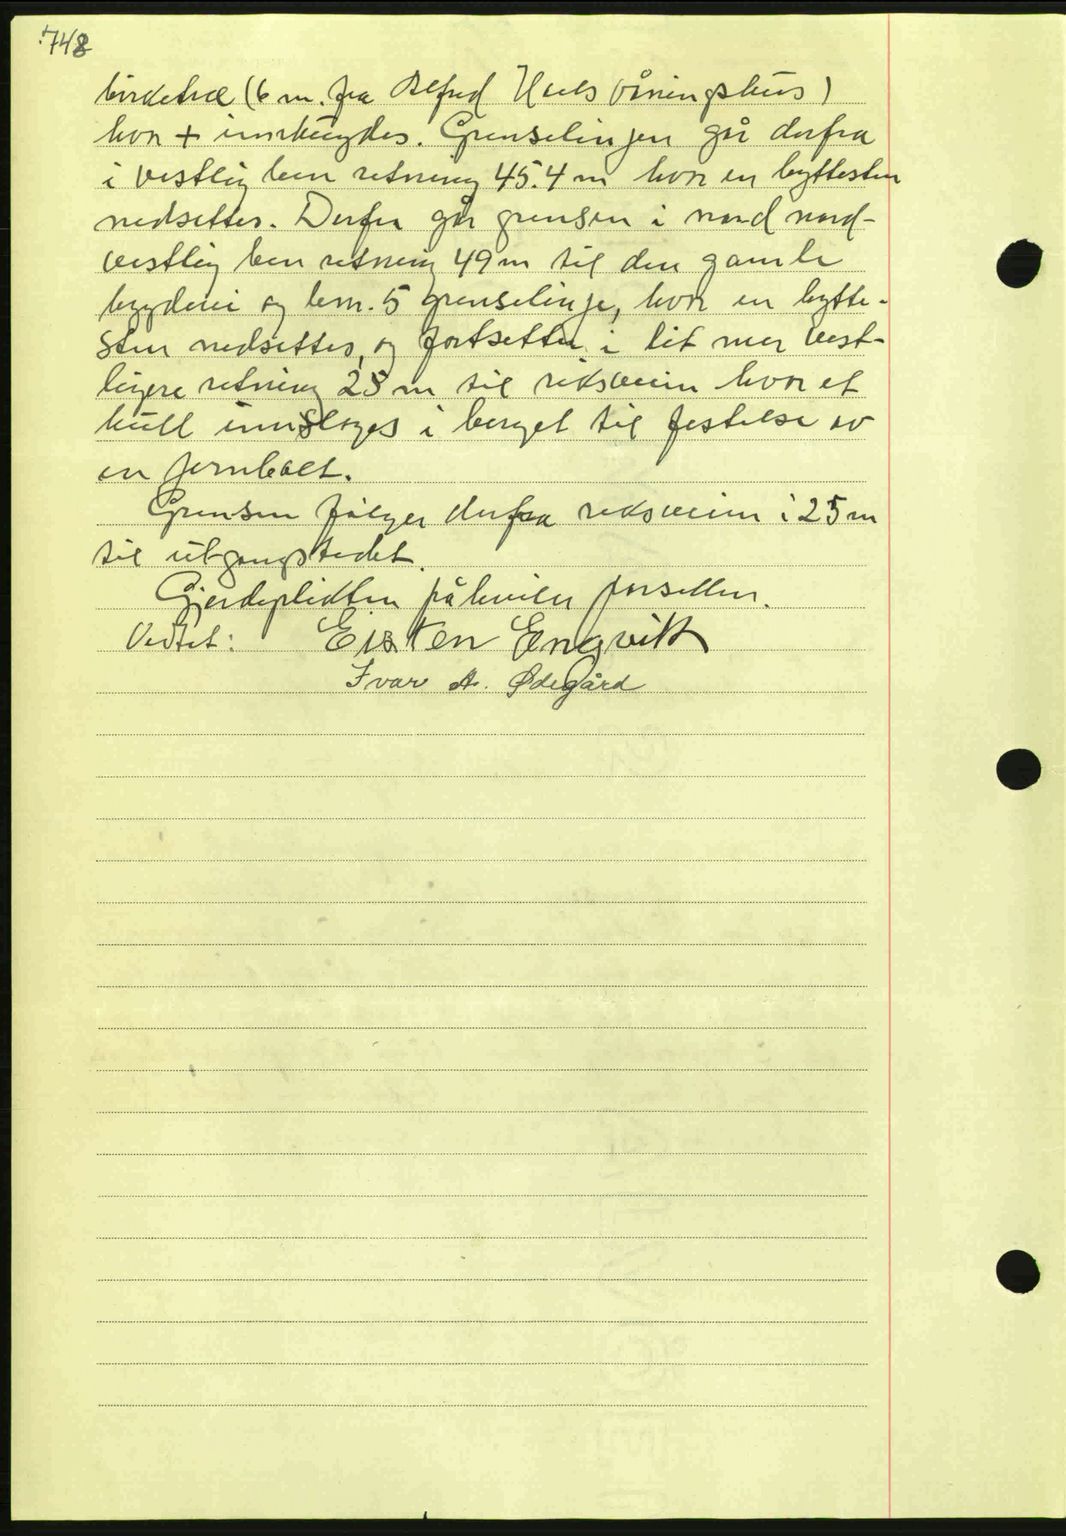 748
birketre (6 m. fra Alfred Hals våningshus)
hvor + innhugdes. Grenselinjen går derfra
i vestlig ben retning 45.4 m hvor en byttesten
nedsettes. Derfra går grensen i nord nord-
vestlig ben retning 49 m til den gamle
og brn. 5 grenselinje, hvor en bytte-
sten nedsettes, og fortsetter i lit mer vest-
ligere retning 25 m til riksveien hvor et
hull innslages i berget til festelse av
en jernbolt.
Grensen følger derfra riksveien i 25 m
til utgangstedet.
Gjerdeplikten påhviler parsellen.
Vedtat: Eisten Engvik
Ivar A. Ødegård